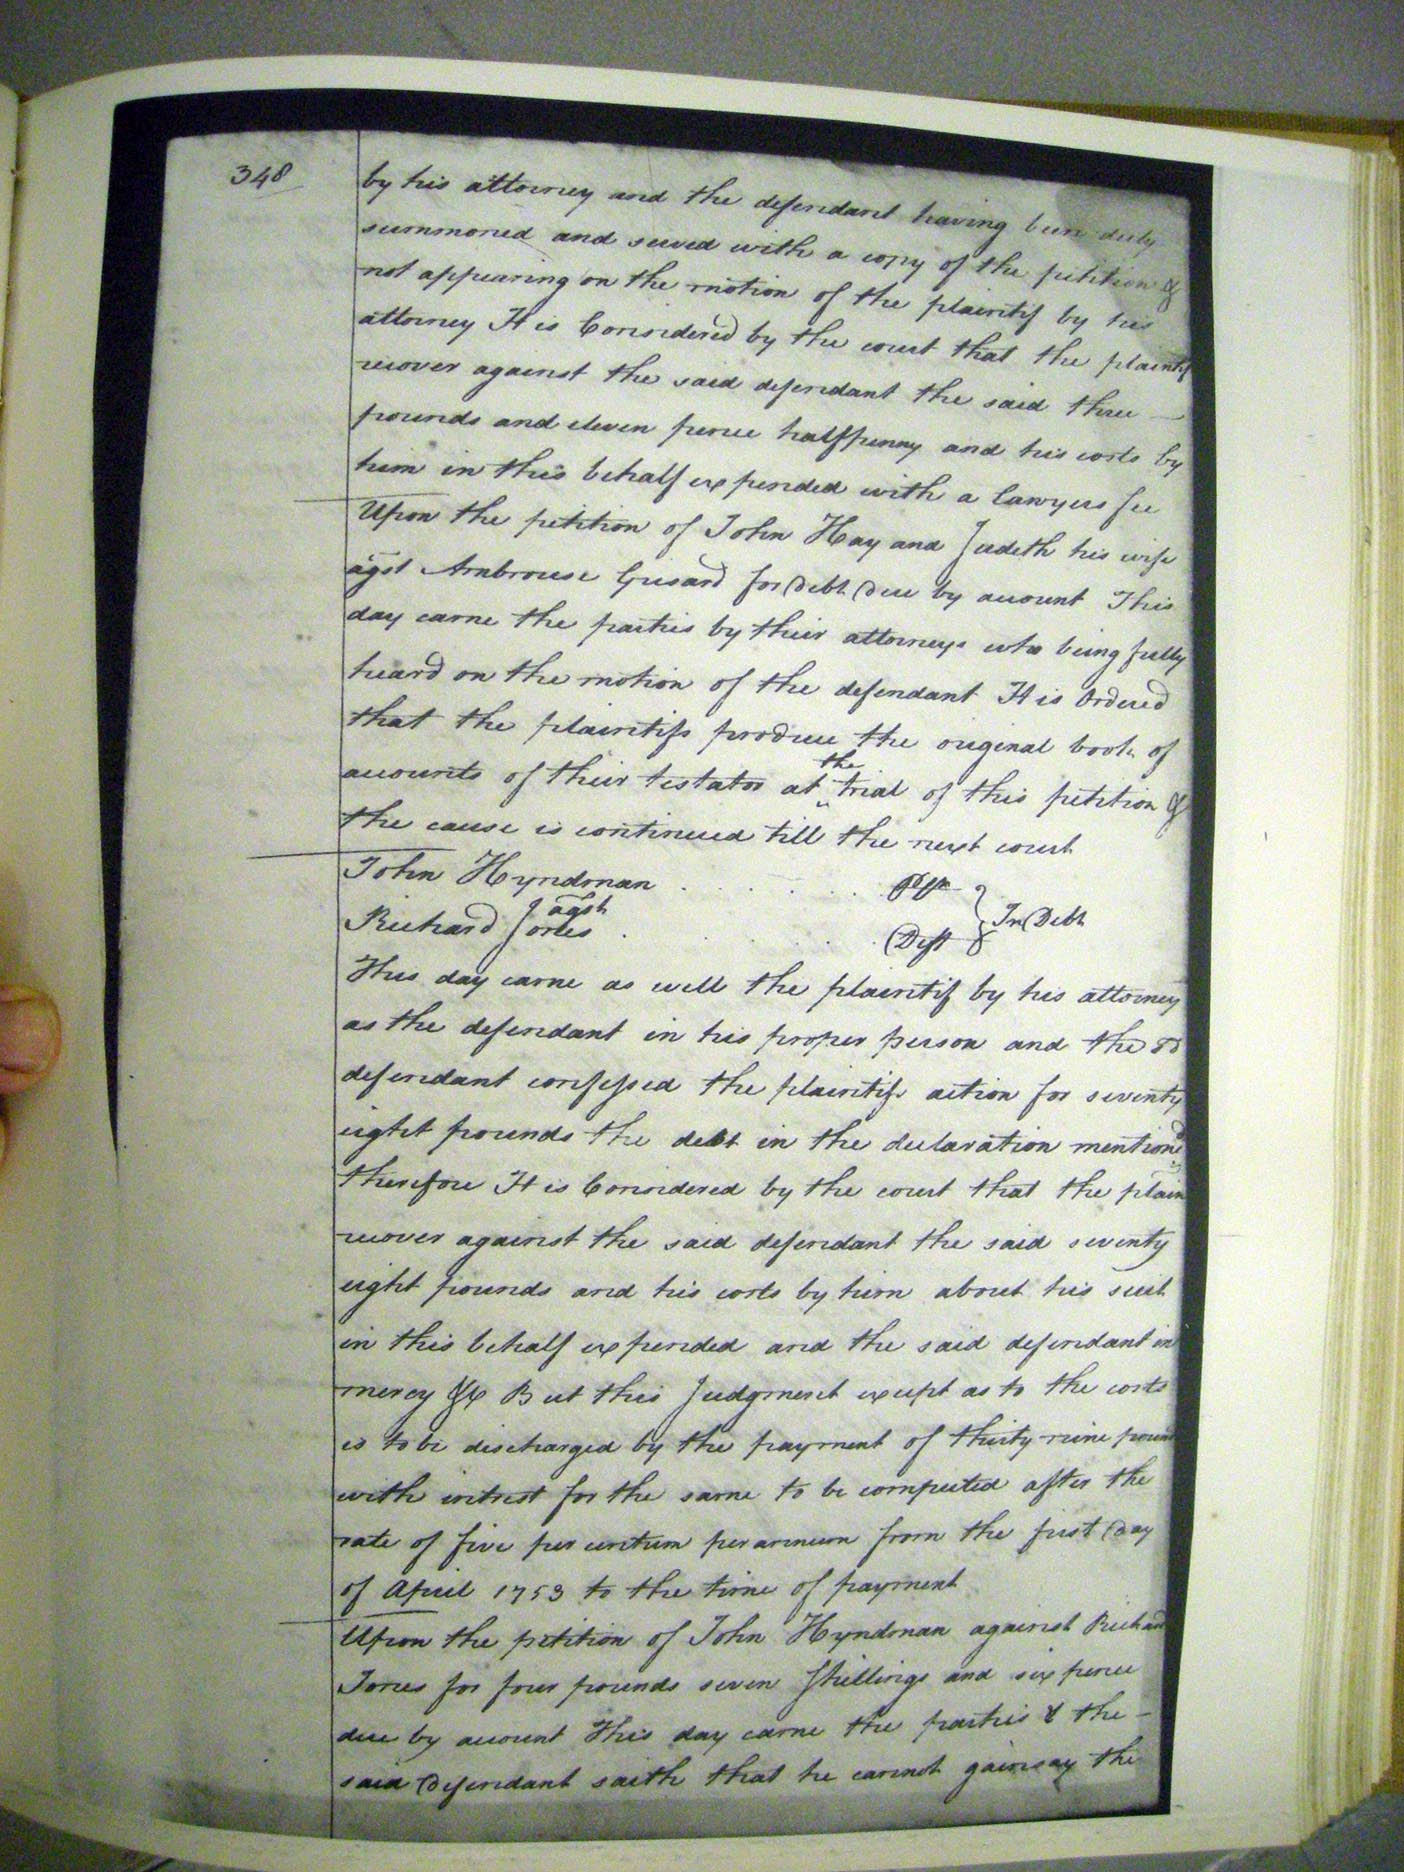 348
by his attorney and the defendant having been duly
summoned and served with a copy of the petition &
not appearing on the motion of the plaintif by his
attorney It is Considered by the court that the plaintif
recover against the said defendant the said three
pounds and eleven pence halfpenny and his costs by
him in this behalf expended with a lawyers fee
Upon the petition of John Hay and Judeth his wife
agst Ambrouse Grisard for Debt Due by account This
day came the parties by their attorneys who being fully
heard on the motion of the defendant It is Ordered
that the plaintifs produce the original book of
accounts of their testator at the trial of this petition &
the cause is continued till the next court
John Hyndman . . . . . . Pltf
agst
Richard Jones . . . . . Deft } In Debt
This day came as well the plaintif by his attorney
as the defendant in his proper person and the sd
defendant confessed the plaintifs action for seventy
eight pounds the debt in the declaration mentiond
therefore It is Considered by the court that the plain
recover against the said defendant the said seventy
eight pounds and his costs by him about his suit
in this behalf expended and the said defendant in
mercy &c But this Judgment except as to the costs
is to be discharged by the payment of thirty nine pound
with intrest for the same to be computed after the
rate of five per centum per annum from the first Day
of April 1753 to the time of payment
Upon the petition of John Hyndman against Richard
Jones for four pounds seven shillings and six pence
due by account This day came the parties & the
said Defendant saith that he cannot gainsay the